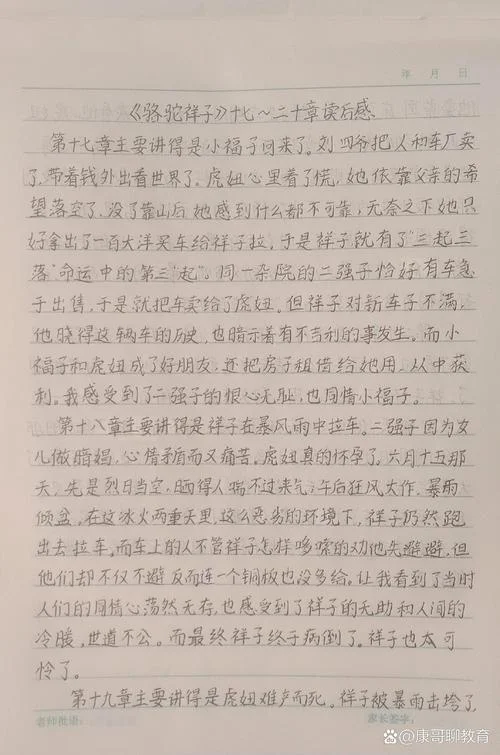 年 月 日
《骆驼祥子》十七~二十章读后感
第十七章主要讲得是小福子回来了。刘四爷把人和车厂卖
了,带着钱外出看世界了。虎妞心里着了慌,她依靠父亲的希
望落空了,没了靠山后她感到什么都不可靠,无奈之下她只
好拿出了一百大洋买车给祥子拉,于是祥子就有了“三起三
落”命运中的第三“起”。同一杂院的二强子恰好有车急
于出售,于是就把车卖给了虎妞。但祥子对新车子不满,
他晓得这辆车的历史,也暗示着有不吉利的事发生。而小
福子和虎妞成了好朋友,还把房子租借给她用,从中获
利。我感受到了二强子的恨心无耻,也同情小福子。
第十八章主要讲得是祥子在暴风雨中拉车。二强子因为女
儿做暗娼,心情矛盾而又痛苦。虎妞真的怀孕了,六月十五那
天,先是烈日当空,晒得人喘不过来气;午后狂风大作,暴雨
倾盆,在这冰火两重天里,这么恶劣的环境下,祥子仍然跑
出去拉车。而车上的人不管祥子怎样哆嗦的劝他先避避,但
他们却不仅不避反而连一个铜板也没多给,让我看到了当时
人们的同情心荡然无存,也感受到了祥子的无助和人间的
冷暖,世道不公。而最终祥子终于病倒了。祥子也太可
怜了。
第十九章主要讲得是虎妞难产而死。祥子被暴雨击垮了,
老师批语: 家长签字:
@康哥聊教育